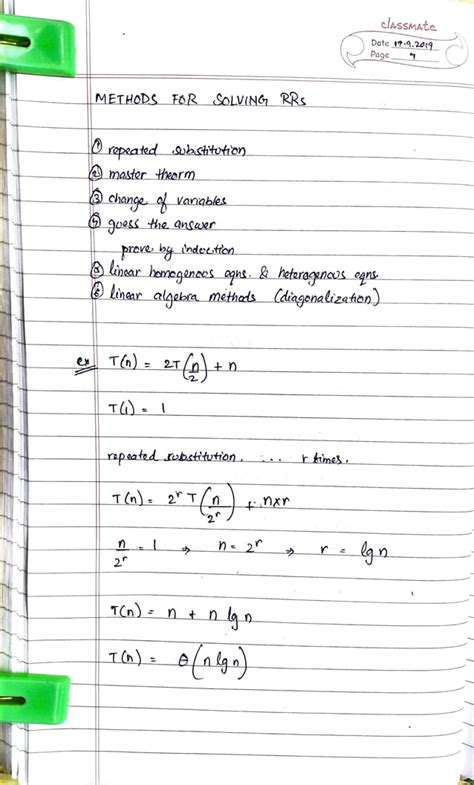 classmate
Date 17.9.2019
Page 4
METHODS FOR SOLVING RRs
① repeated substitution
② master theorm
③ change of variables
④ guess the answer
prove by induction
⑤ linear homogenous eqns. & heterogenous eqns
⑥ linear algebra methods (diagonalization)
ex T(n) = 2T(n/2) + n
T(1) = 1
repeated substitution. ... r times.
T(n) = 2^r T(n/2^r) + n×r
n/2^r = 1 ⇒ n = 2^r ⇒ r = lg n
T(n) = n + n lg n
T(n) = θ(n lg n)